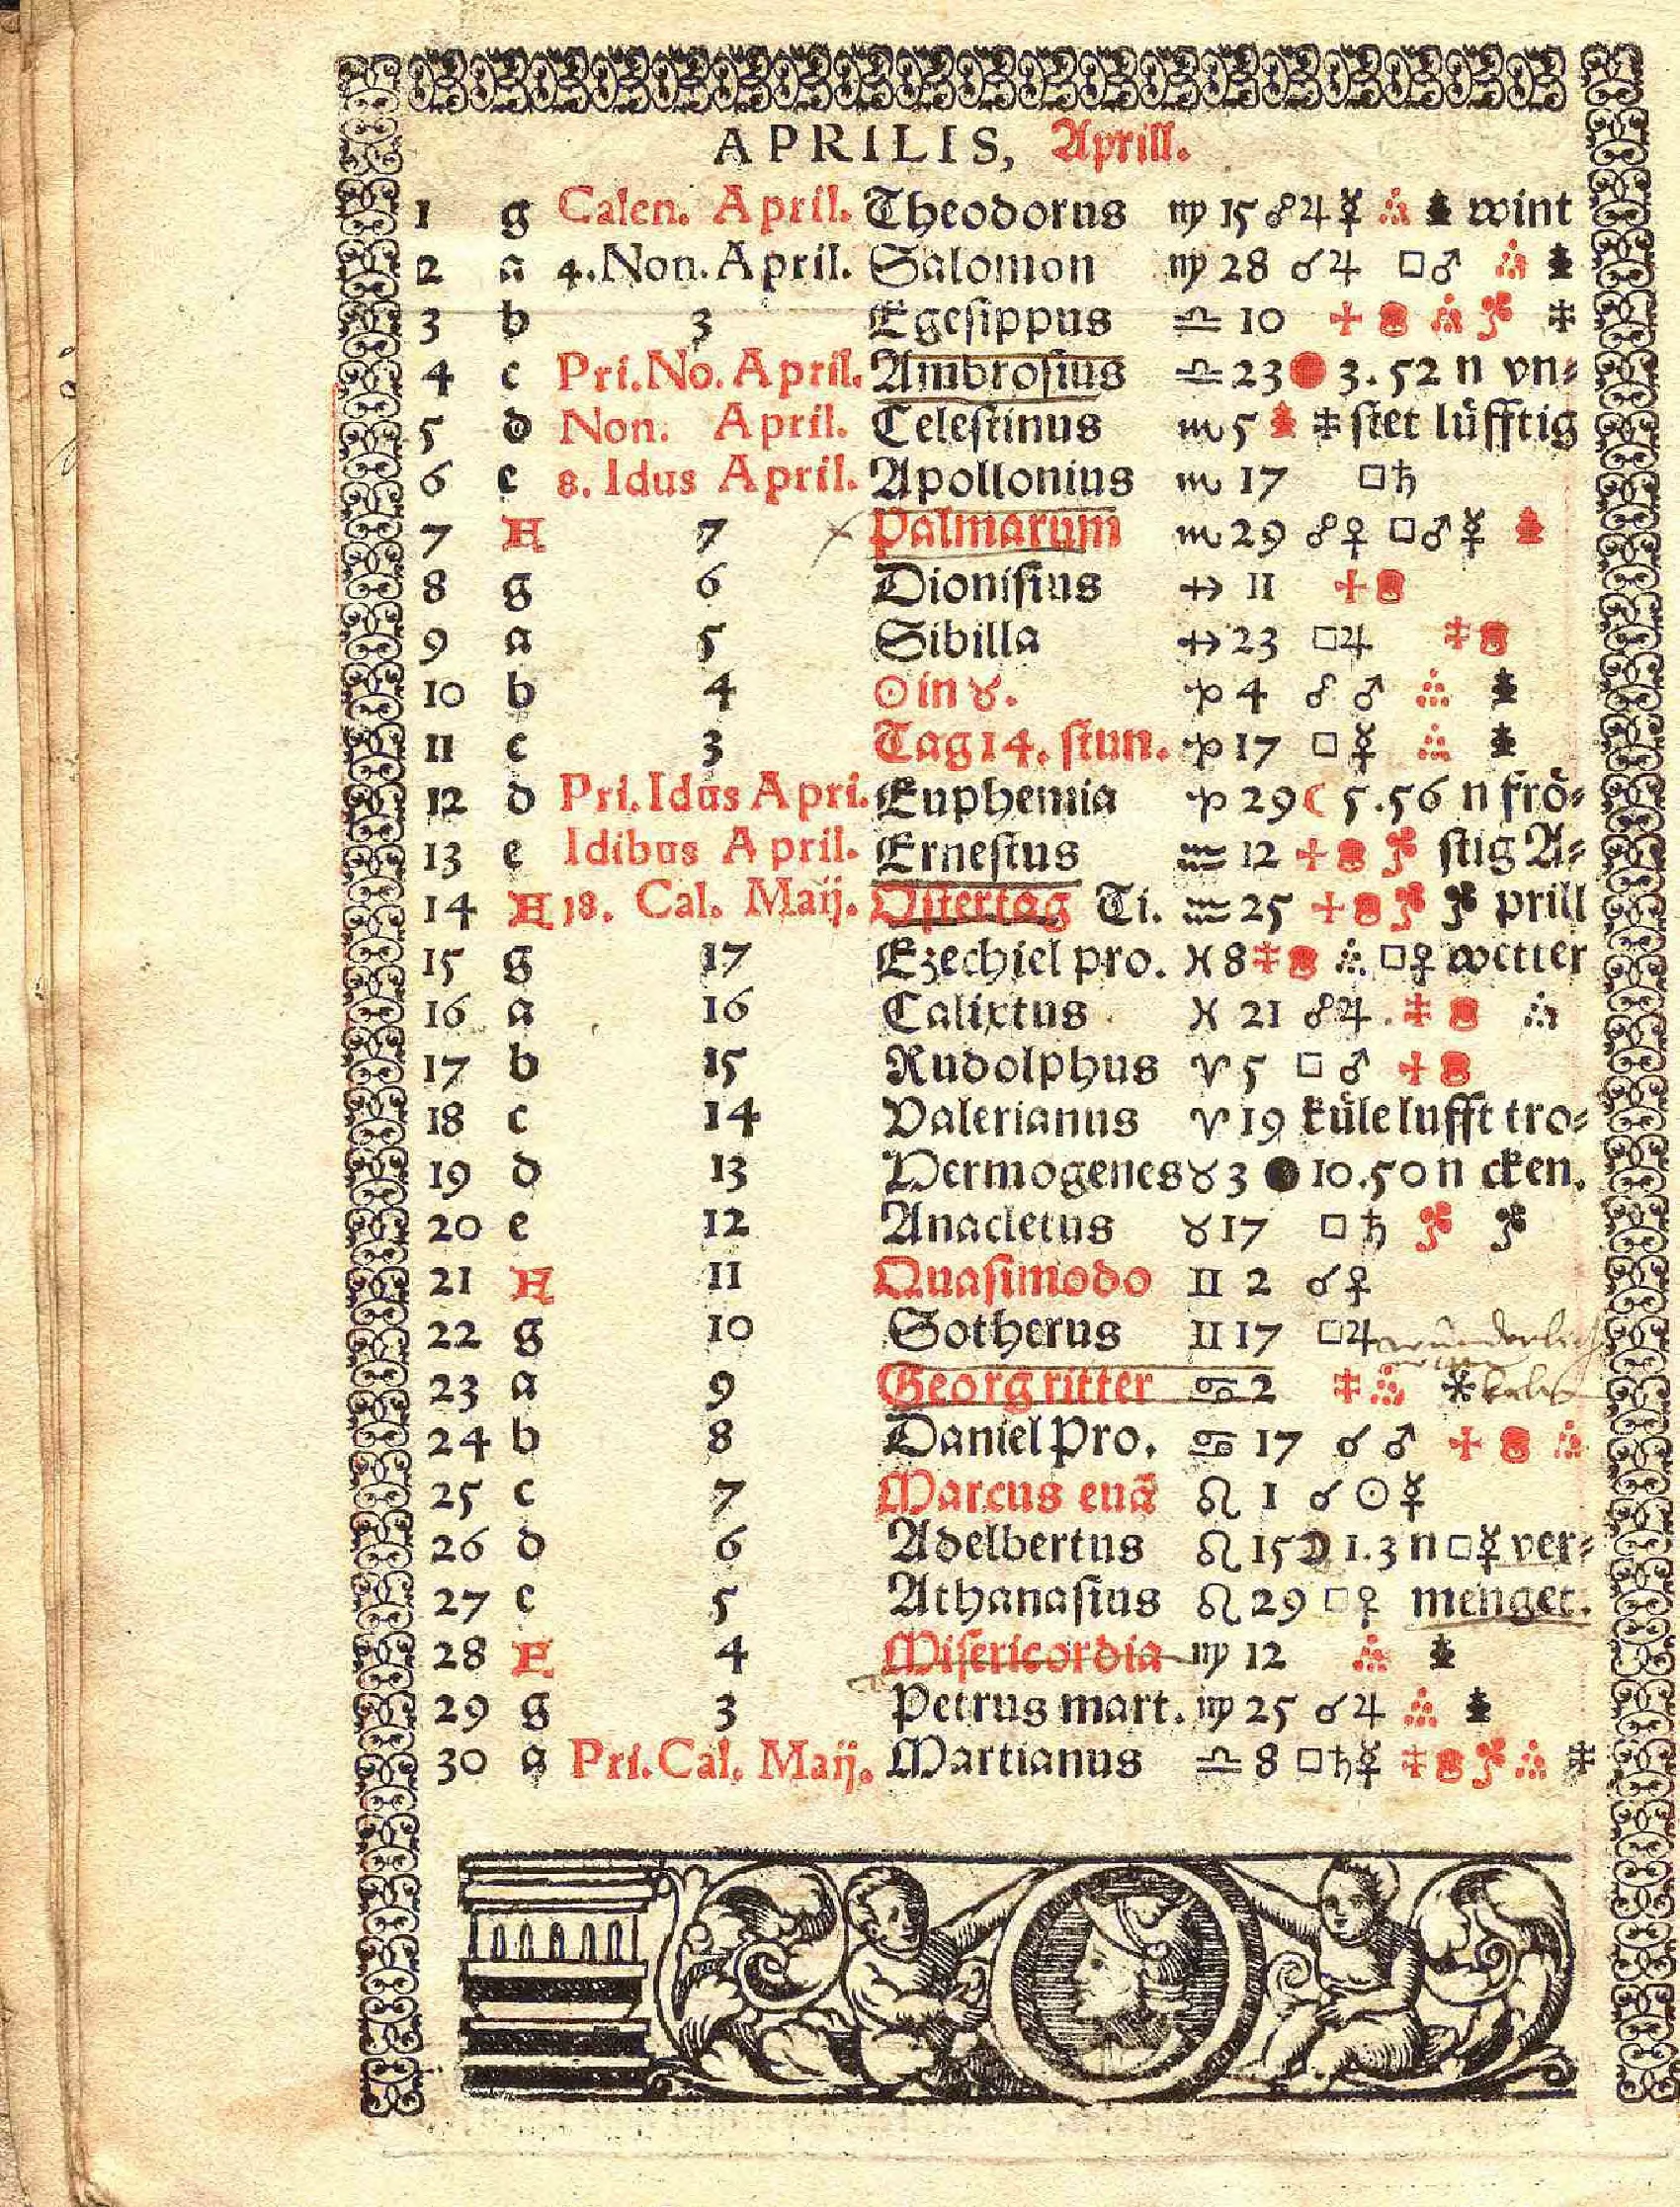 APRILIS, Aprill.
1 g Calen. April. Theodorus ♍ 15 ☍ ♃ ☿ wint
2 a 4. Non. April. Salomon ♍ 28 ☌ ♃ □ ♂
3 b 3 Egesippus ♎ 10
4 c Pri. No. April. Ambrosius ♎ 23 3.52 n vn⸗
5 d Non. April. Celestinus ♏ 5 stet lüfftig
6 e 8. Idus April. Apollonius ♏ 17 □ ♄
7 7 Palmarum ♏ 29 ☍ ♀ □ ♂ ☿
8 g 6 Dionisius ♐ 11
9 a 5 Sibilla ♐ 23 □ ♃
10 b 4 ☉ in ♉. ♑ 4 ☍ ♂
11 c 3 Tag 14. stun. ♑ 17 □ ☿
12 d Pri. Idus Apri. Euphemia ♑ 29 ☾ 5.56 n frö⸗
13 e Idibus April. Ernestus ♒ 12 stig A⸗
14 18. Cal. Maij. Ostertag Ti. ♒ 25 prill
15 g 17 Ezechiel pro. ♓ 8 □ ♀ wetter
16 a 16 Calixtus ♓ 21 ☍ ♃
17 b 15 Rudolphus ♈ 5 □ ♂
18 c 14 Valerianus ♈ 19 küle lufft tro⸗
19 d 13 Hermogenes ♉ 3 ● 10.50 n cken.
20 e 12 Anacletus ♉ 17 □ ♄
21 11 Quasimodo ♊ 2 ☌ ♀
22 g 10 Sotherus ♊ 17 □ ♃
23 a 9 Georg ritter ♋ 2
24 b 8 Daniel Pro. ♋ 17 ☌ ♂
25 c 7 Marcus euã ♌ 1 ☌ ☉ ☿
26 d 6 Adelbertus ♌ 15 ☽ 1.3 n □ ☿ ver⸗
27 e 5 Athanasius ♌ 29 □ ♀ menget.
28 4 Misericordia ♍ 12
29 g 3 Petrus mart. ♍ 25 ☌ ♃
30 a Pri. Cal. Maij. Martianus ♎ 8 □ ♄ ☿